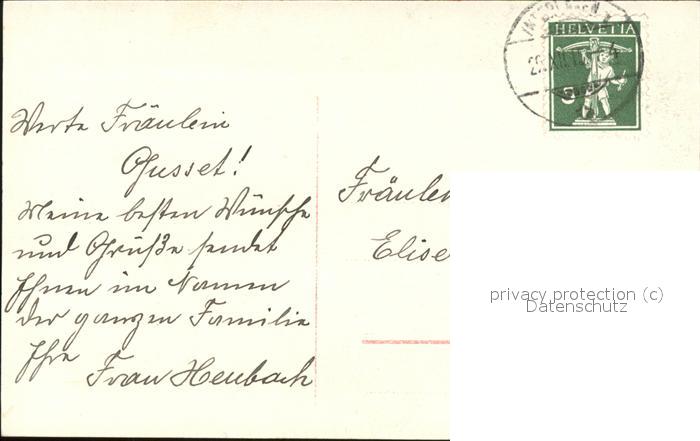 HELVETIA
Werte Fräulein
Gusset!
Meine besten Wünsche
und Grüße sendet
Ihnen im Namen
der ganzen Familie
Ihre
Frau Heubach
Fräulei
Elise
privacy protection (c)
Datenschutz